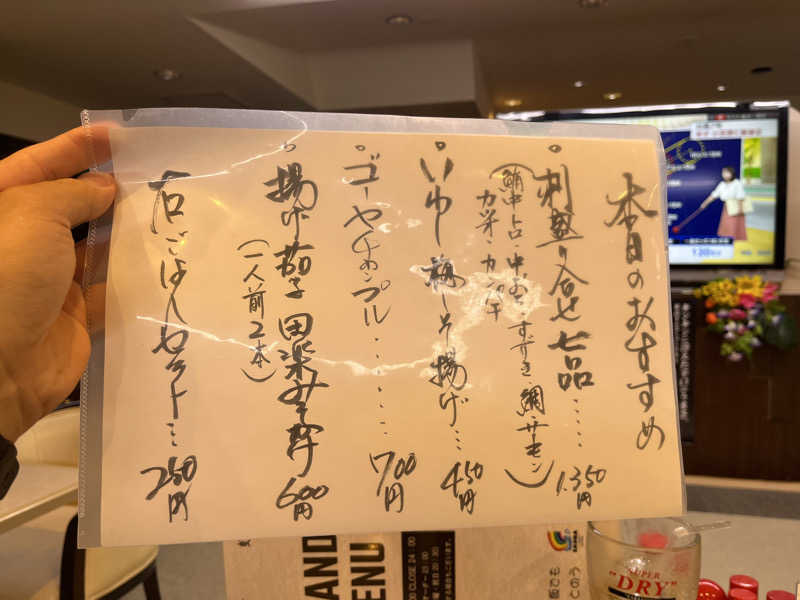 本日のおすすめ
刺盛り合せ七品‥‥‥ 1.350円
(鮪中トロ・中おち・すずき・鯛・サーモン
カツオ・カンパチ)
いわし梅しそ揚げ‥‥ 450円
ゴーヤチャンプル‥‥‥‥ 700円
揚げ茄子田楽みそ掛け 600円
(一人前2本)
白ごはんセット‥‥ 250円
CLOSE 24:00
"SUPER
"DRY"